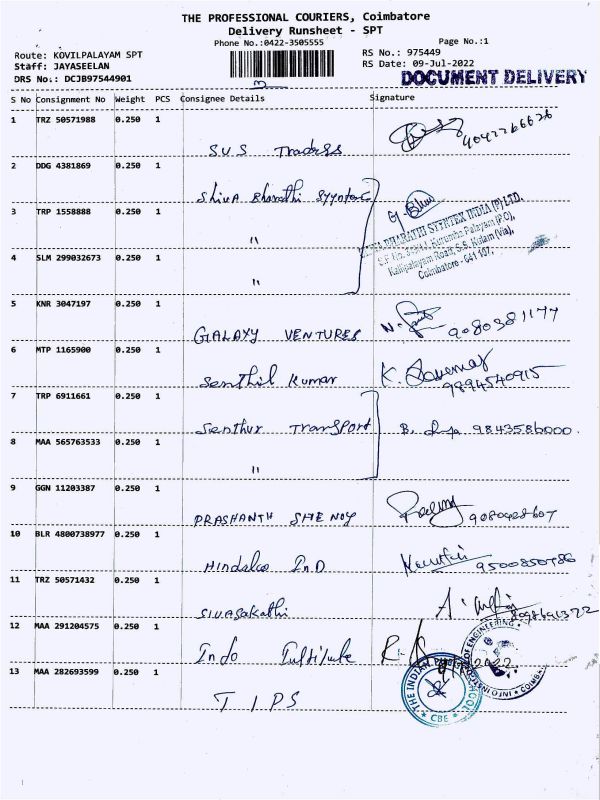 THE PROFESSIONAL COURIERS, Coimbatore
Delivery Runsheet - SPT
Phone No.:0422-3505555
Page No.:1
Route: KOVILPALAYAM SPT
RS No.: 975449
Staff: JAYASEELAN
RS Date: 09-Jul-2022
DRS No.: DCJB97544901
DOCUMENT DELIVERY
S No Consignment No Weight PCS Consignee Details Signature
1 TRZ 50571988 0.250 1
SVS Traders
2 DDG 4381869 0.250 1
Shiva Bharathi
3 TRP 1558888 0.250 1
"
4 SLM 299032673 0.250 1
"
BHARATHI SYNTEX INDIA (P) LTD.
Kurumba Palayam (PO),
Kallipalayam Road, S.S. Kulam (Via),
Coimbatore - 641 107.
5 KNR 3047197 0.250 1
GALAXY VENTURES 9080381177
6 MTP 1165900 0.250 1
Senthil Kumar K. 9894540915
7 TRP 6911661 0.250 1
Senthur Transport B. 9843586000
8 MAA 565763533 0.250 1
"
9 GGN 11203387 0.250 1
PRASHANTH SHENOY
10 BLR 4800738977 0.250 1
Hindalco IND 9500850786
11 TRZ 50571432 0.250 1
SIVASAKATHI
12 MAA 291204575 0.250 1
Indo
13 MAA 282693599 0.250 1
TIPS
THE INDIAN PUBLIC SCHOOL
CBE
OF ENGINEERING